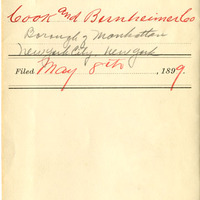 Cook and Bernheimer Co
Borough of Manhattan
New York City, New York
Filed May 8th, 1899.